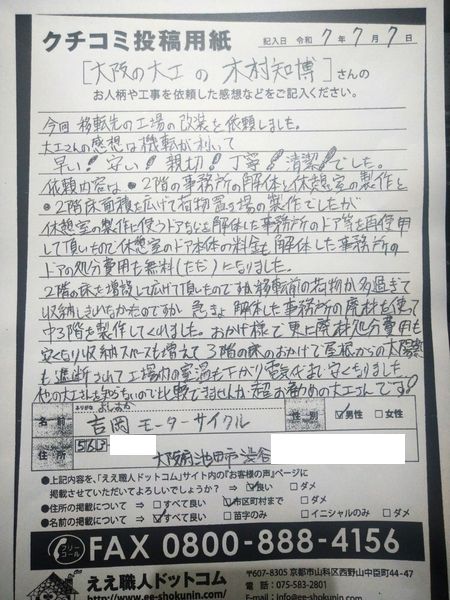 クチコミ投稿用紙
記入日 令和 7年 7月 7日
[大阪の大工の 木村知博]さんの
お人柄や工事を依頼した感想などをご記入ください。
今回 移転先の工場の改装を依頼しました。
大工さんの感想は機転が利いて
早い! 安い! 親切! 丁寧! 清潔! でした。
依頼内容は ●2階の事務所の解体と休憩室の製作と
●2階床面積を広げて荷物置き場の製作でしたが
休憩室の製作に使うドアなどを解体した事務所のドア等を再使用
して頂いたので休憩室のドア本体の料金も解体した事務所の
ドアの処分費用も無料(ただ)になりました。
2階の床を増設して広げて頂いたのですが移転前の荷物が多過ぎて
収納しきれなかったのですが 急きょ 解体した事務所の廃材を使って
中3階を製作してくれました。おかげ様で 更に廃材処分費用も
安くなり収納スペースも増えて 3階の床のおかげで屋根からの太陽熱
も遮断されて工場内の室温も下がり電気代まで安くなりました。
他の大工さんを知らないので比較できませんが超お勧めの大工さんです!
ふりがな よしおか
名前 吉岡 モーターサイクル
性別 ☑男性 □女性
住所 〒563
大阪府池田市渋谷
●上記内容を、「ええ職人ドットコム」サイト内の『お客様の声』ページに
掲載させていただいてよろしいでしょうか? ⇒ ☑良い □ダメ
●住所の掲載について ⇒ □すべて良い ☑市区町村まで □ダメ
●名前の掲載について ⇒ ☑すべて良い □苗字のみ □イニシャルのみ □ダメ
フリーコール FAX 0800-888-4156
ええ職人ドットコム
http://www.ee-shokunin.com
〒607-8305 京都市山科区西野山中臣町44-47
電話:075-583-2801